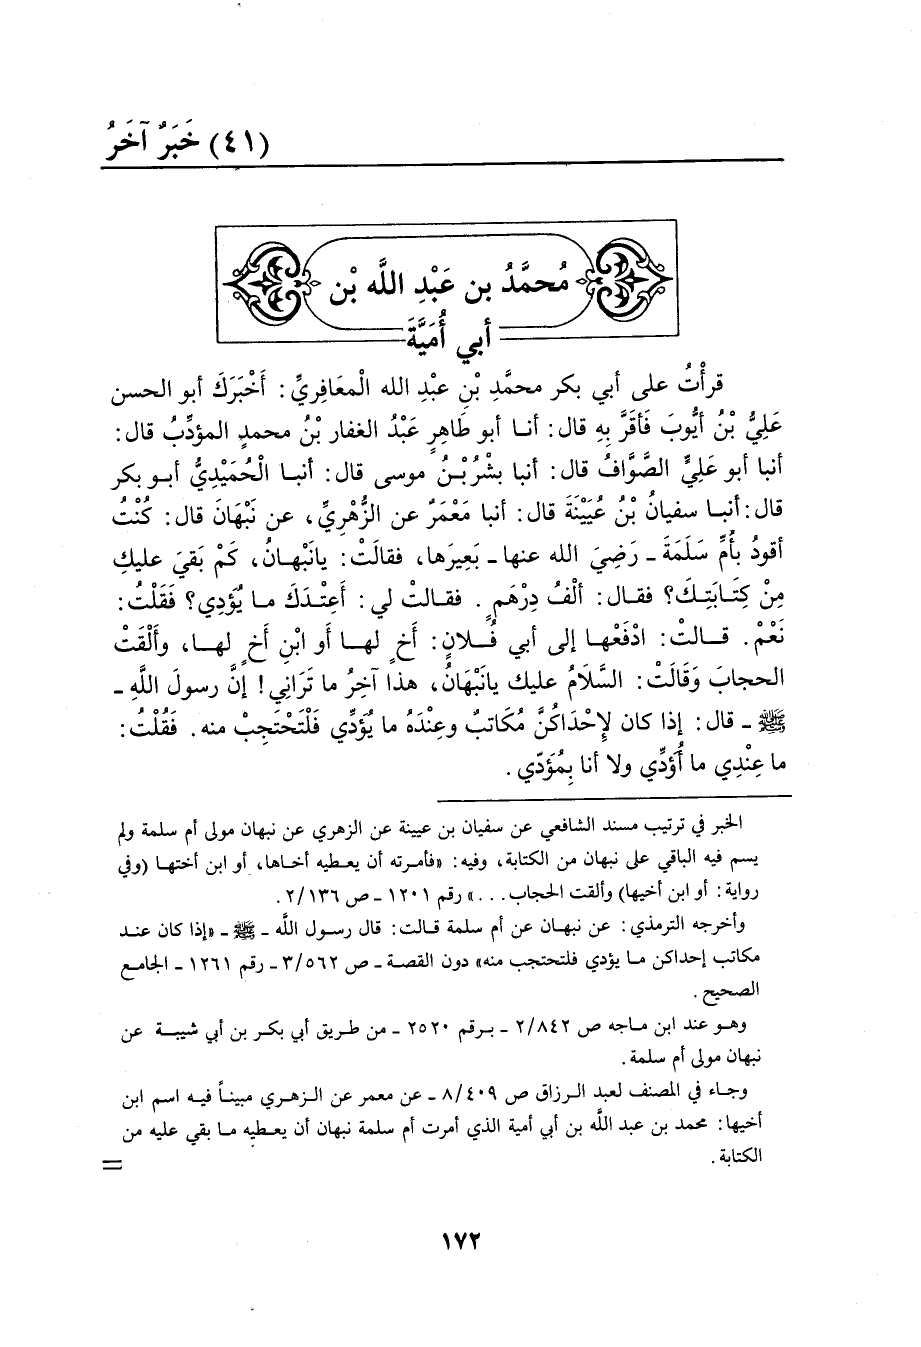 (٤١) خَبَرٌ آخَرُ
مُحمَّدُ بن عَبْدِ اللَّه بْن
أبي أُمَيَّةَ
قرأْتُ على أبي بكر محمَّدِ بْنِ عبْدِ الله الْمعَافِريِّ: أَخْبَرَكَ أبو الحسن
عَلِيُّ بْنُ أيُّوبَ فَأقَرَّ بِهِ قال: أنـا أبو طَاهِرٍ عَبْدُ الغفار بْنُ محمدٍ المؤدِّبُ قال:
أنبا أبو عَلِيٍّ الصَّوَّافُ قال: أنبا بشْرُ بْـنُ موسى قال: أنبـا الْحُمَيْدِيُّ أبـو بكر
قال: أنبـا سفيانُ بْنُ عُيَيْنَةَ قال: أنبا مَعْمَرٌ عن الزُّهْرِيِّ، عن نَبْهَانَ قال: كُنْتُ
أقودُ بأُمِّ سَلَمَةَ ـ رَضِيَ الله عنها ـ بَعِيرَها، فقالَتْ: يانَبْهـانُ، كَمْ بَقيَ عليكِ
مِنْ كِتَـابَتِـكَ؟ فقـال: ألْفُ دِرْهَمٍ. فقـالتْ لي: أَعِنْـدَكَ مـا يُؤَدِي؟ فَقَلْتُ:
نَعْمْ. قـالتْ: ادْفَعْهـا إلى أبي فُـلانٍ: أخٍ لهـا أو ابْنِ أخٍ لهـا، وأَلْقَتْ
الحجابَ وَقَالَتْ: السَّلَامُ عليك يانَبْهَانُ، هذا آخِرُ ما تَرَانِي! إنَّ رسولَ اللَّهِ ـ
ﷺ ـ قال: إذا كان لِإِحْدَاكُنَّ مُكَاتبٌ وعِنْدَهُ ما يُؤَدِّي فَلْتَحْتَجِبْ منه. فَقُلْتُ:
ما عِنْدِي ما أُؤَدِّي ولا أنا بِمُؤَدّي.
الخبر في ترتيب مسند الشافعي عن سفيان بن عيينة عن الزهري عن نبهان مولى أم سلمة ولم
يسم فيه الباقي على نبهان من الكتابة، وفيه: «فأمرته أن يعـطيه أخـاها، أو ابن أختهـا (وفي
رواية: أو ابن أخيها) وألقت الحجاب...» رقم ١٢٠١ ـ ص ٢/١٣٦.
وأخرجه الترمذي: عن نبهـان عن أم سلمة قـالت: قال رسـول اللَّه ـ ﷺ ـ «إذا كان عنـد
مكاتب إحداكن مـا يؤدي فلتحتجب منه» دون القصة ـ ص ٣/٥٦٢ ـ رقم ١٢٦١ ـ الجامع
الصحيح.
وهـو عند ابن مـاجه ص ٢/٨٤٢ ـ بـرقم ٢٥٢٠ ـ من طـريق أبي بكـر بن أبي شيبـة عن
نبهان مولى أم سلمة.
وجـاء في المصنف لعبد الـرزاق ص ٨/٤٠٩ ـ عن معمر عن الـزهـري مبينـاً فيـه اسم ابن
أخيها: محمد بن عبد اللَّه بن أبي أمية الذي أمرت أم سلمة نبهان أن يعـطيه مـا بقي عليه من
الكتابة.
=
١٧٢